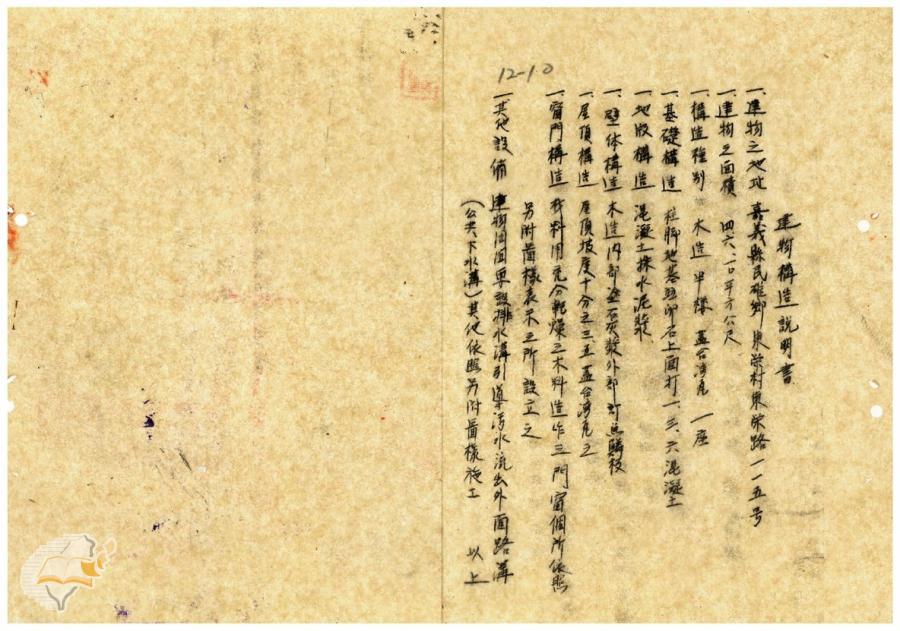 12-1.0
建物構造說明書
一、建物之地址 嘉義縣民雄鄉東榮村東榮路一一五号
一、建物之面積 四六.二〇平方公尺
一、構造種別 木造 平樓 蓋台湾瓦 一座
一、基礎構造 柱脚地基 卵石上面打一.三.六混凝土
一、地版構造 混凝土抹水泥漿
一、壁体構造 木造內部塗石灰漿外部釘魚鱗板
一、屋頂構造 屋頂坡度十分之三.五蓋台湾瓦之
一、窗門構造 材料用充分乾燥之木料造作之 門窗個所依照
另附圖樣表示之所設立之
一、其他設備 建物周圍要設排水溝引導污水流出外面路溝
（公共下水溝）其他依照另附圖樣施工 以上